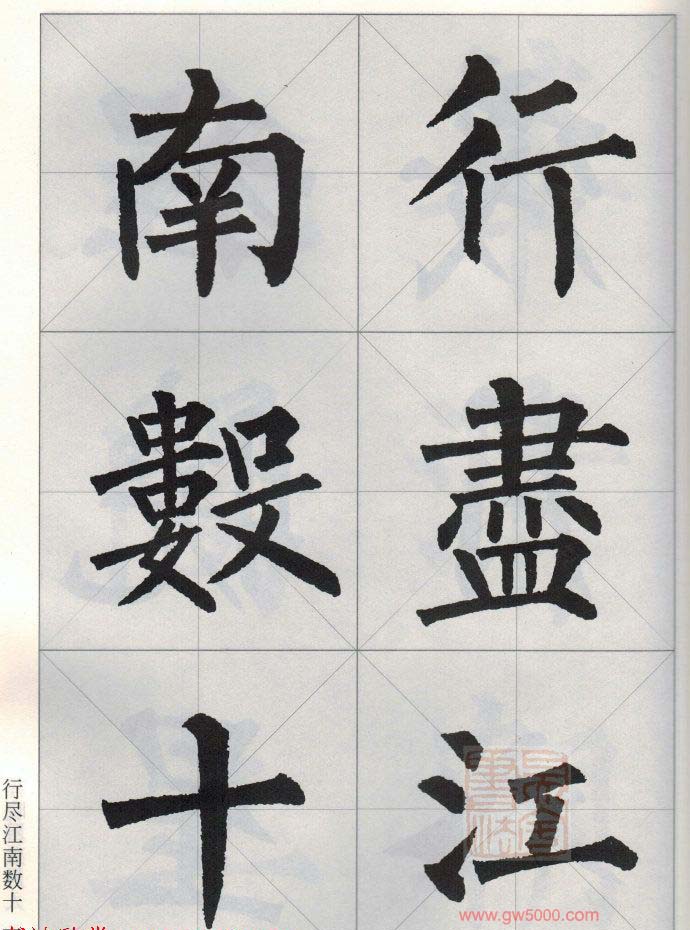 行盡江
南數十
行尽江南数十
www.gw5000.com